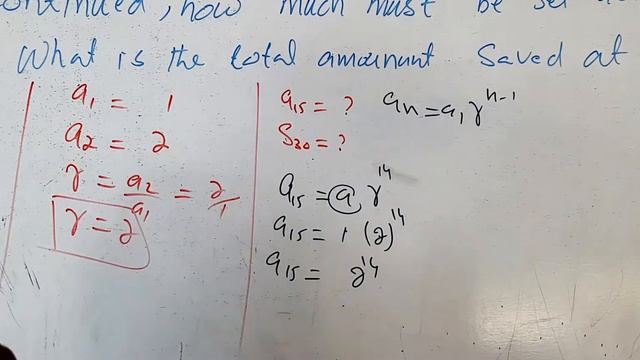 continued, how much must be set
What is the total amoununt saved at
a₁ = 1
a₂ = 2
r = a₂/a₁ = 2/1
r = 2
a₁₅ = ?
S₃₀ = ?
aₙ = a₁ rⁿ⁻¹
a₁₅ = a₁ r¹⁴
a₁₅ = 1 (2)¹⁴
a₁₅ = 2¹⁴